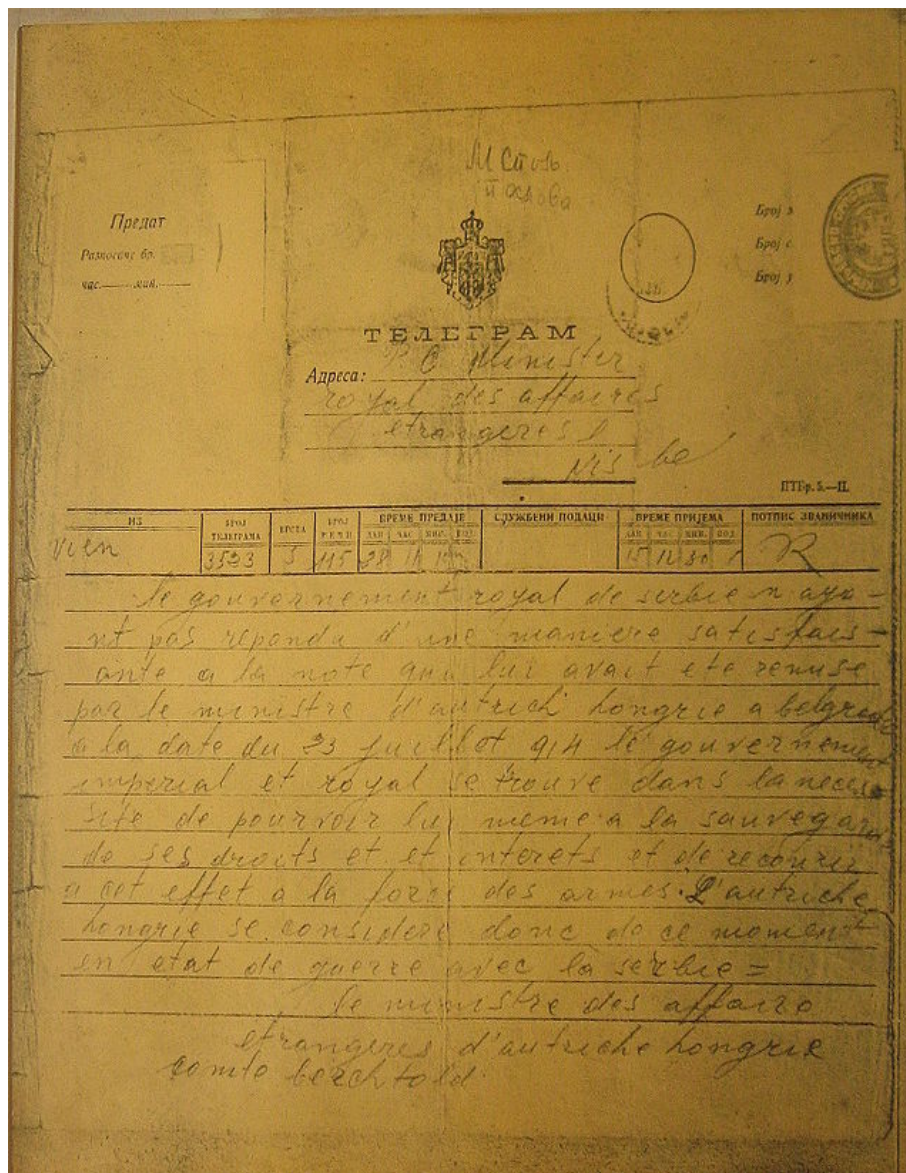 М Стр
послова
Предат
Разносачу бр.
час. мин.
Број
Број
Број
ТЕЛЕГРАМ
Адреса: Minister
royal des affaires
etrangeres
Nis
ПТБр. 5.—II.
ИЗ
БРОЈ ТЕЛЕГРАМА
ВРСТА
БРОЈ РЕЧИ
ВРЕМЕ ПРЕДАЈЕ
СЛУЖБЕНИ ПОДАЦИ
ВРЕМЕ ПРИЈЕМА
ПОТПИС ЗВАНИЧНИКА
ДАН ЧАС МИН. ПОД.
ДАН ЧАС МИН. ПОД
vien 3523 5 115 28
le gouvernement royal de serbie n aya-
nt pas reponda d'une maniere satisfais-
ante a la note qui lui avait ete remise
par le ministre d'autrich hongrie a belgrade
a la date du 23 juillet 914 le gouvernement
imperial et royal se trouve dans la neces-
site de pourvoir lui meme a la sauvegarde
de ses droits et et interets et de recourir
a cet effet a la force des armes. L'autriche
hongrie se considere donc de ce moment
en etat de guerre avec la serbie =
le ministre des affaire
etrangeres d'autriche hongrie
comte berchtold